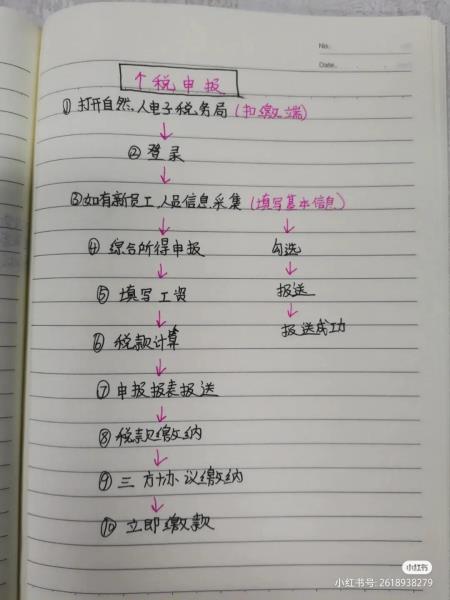 No.
Date.
个税申报
① 打开自然人电子税务局(扣缴端)
② 登录
③ 如有新员工人员信息采集(填写基本信息)
④ 综合所得申报
勾选
⑤ 填写工资
报送
⑥ 税款计算
报送成功
⑦ 申报报表报送
⑧ 税款缴纳
⑨ 三方协议缴纳
⑩ 立即缴款
小红书
小红书号: 2618938279